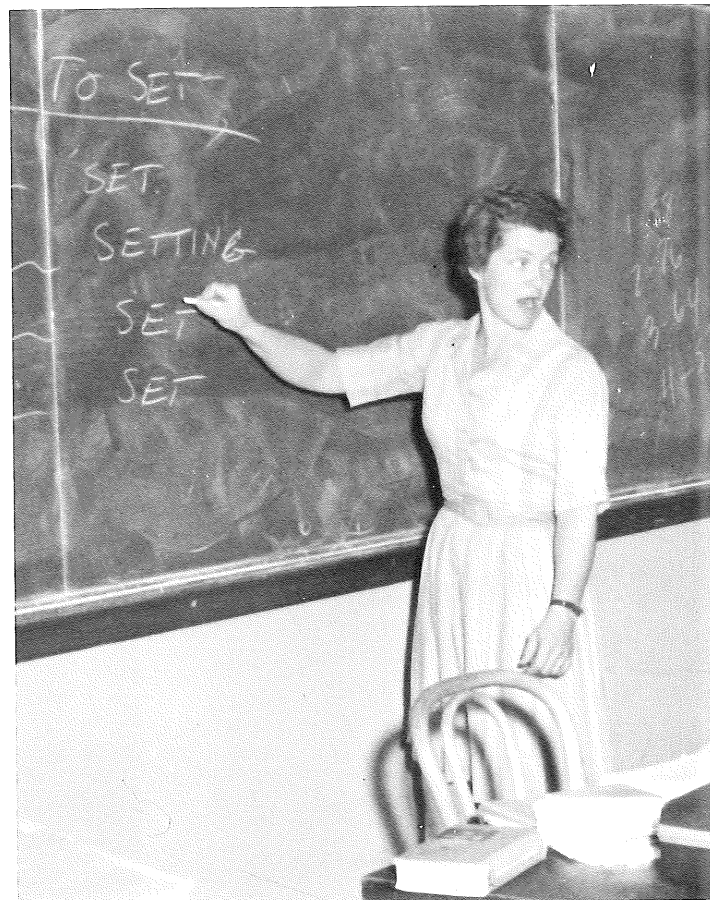 To SET
SET.
SETTING
SET
SET